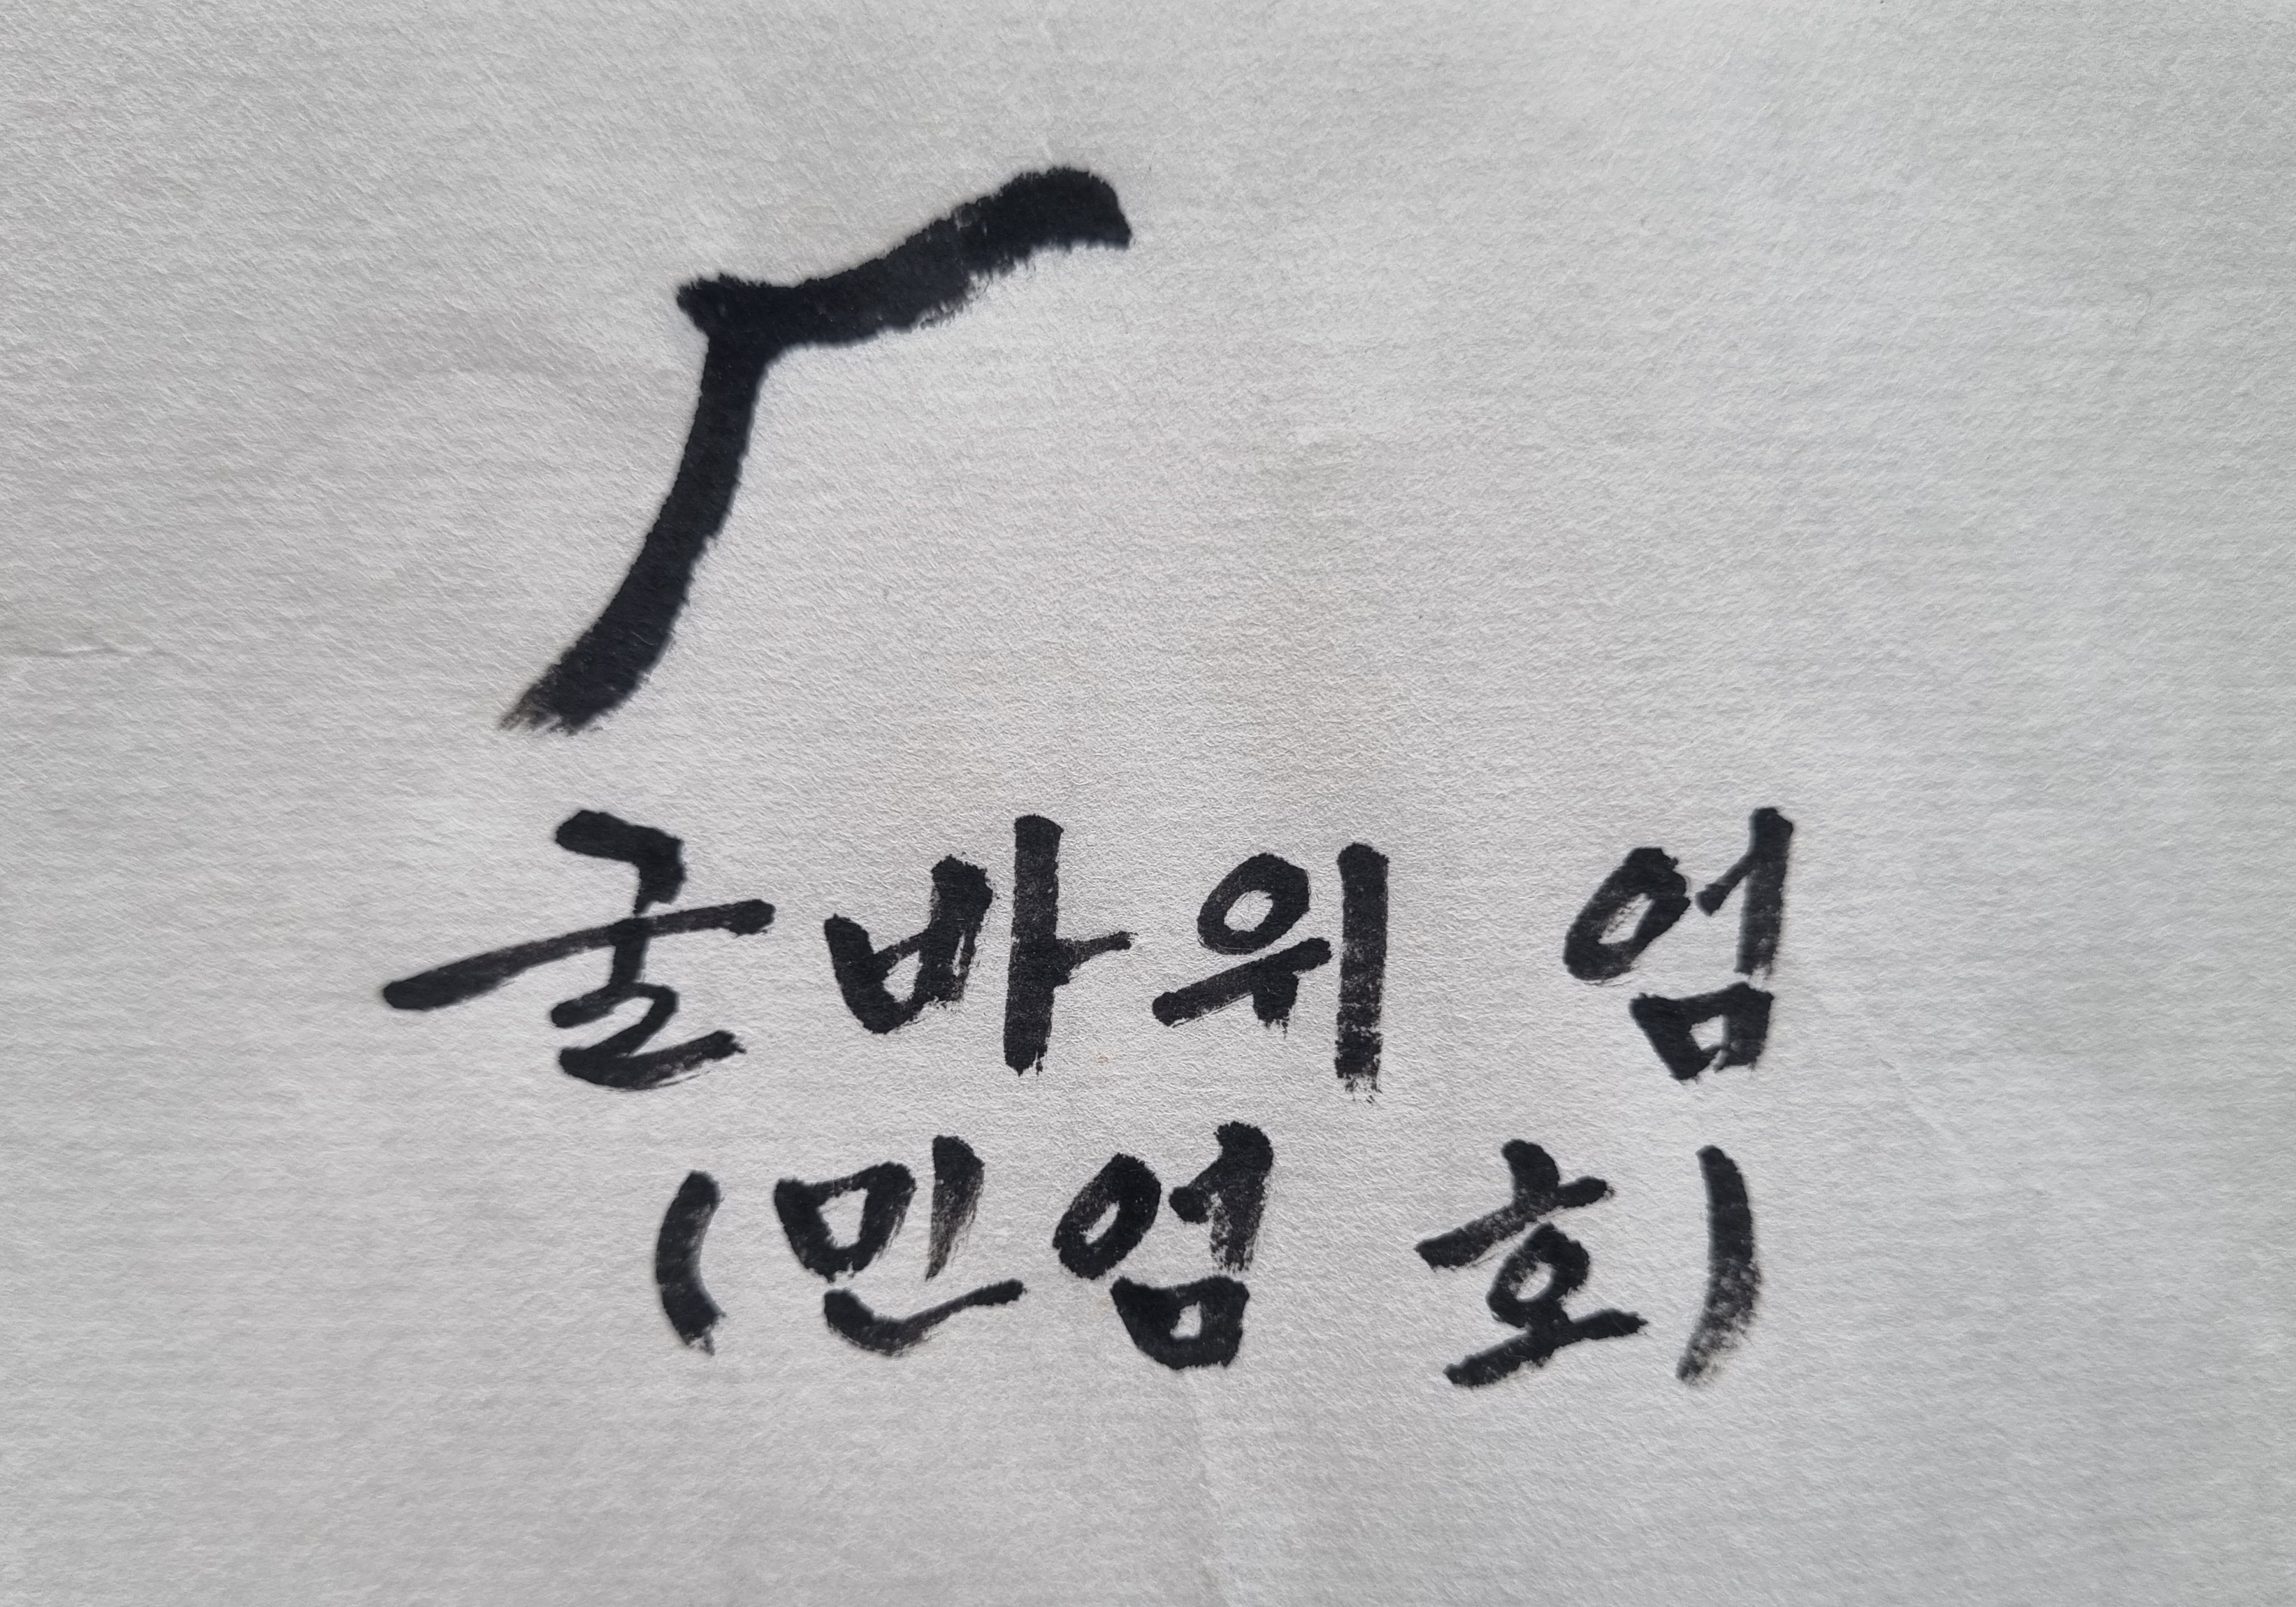 厂
굴바위 엄
(민엄 호)